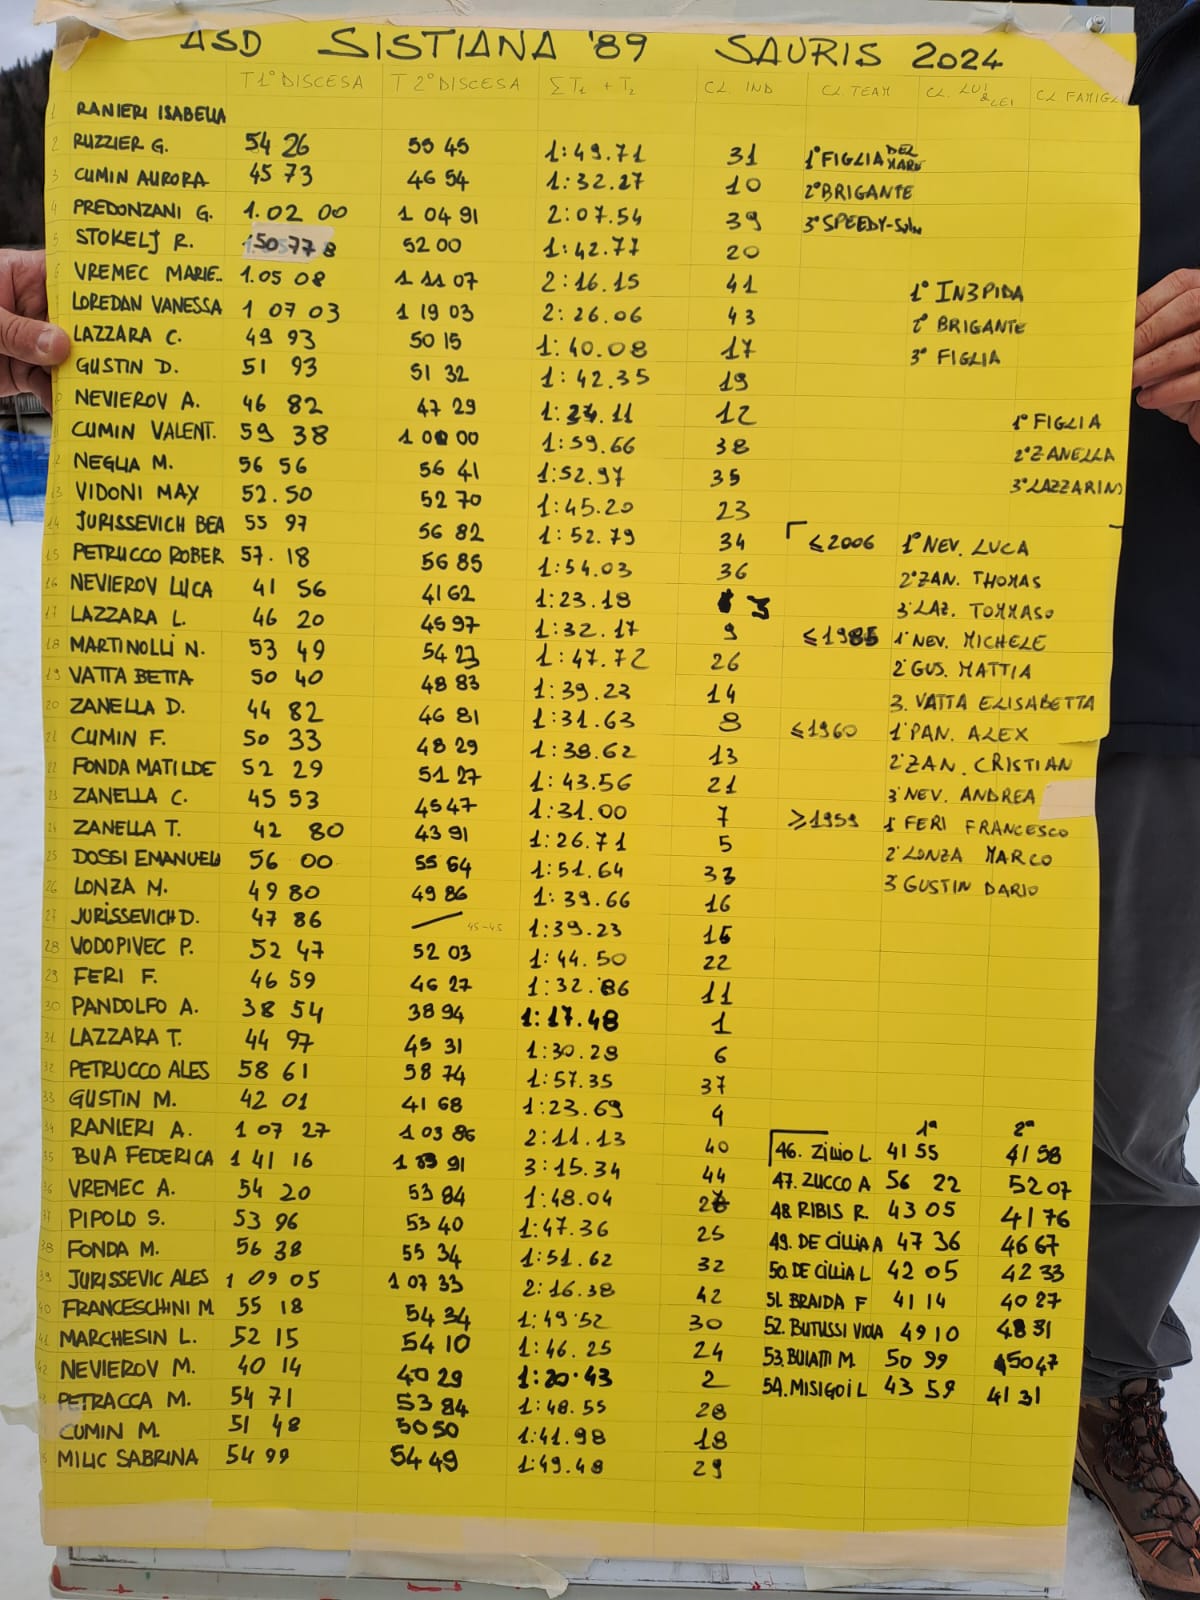 ASD SISTIANA '89 SAURIS 2024
T 1° DISCESA T 2° DISCESA Σ T1 + T2 CL. IND CL. TEAM CL. LUI & LEI CL FAMIGLI
1 RANIERI ISABELLA
2 RUZZIER G. 54 26 55 45 1:49.71 31 1° FIGLIA DEL MARE
3 CUMIN AURORA 45 73 46 54 1:32.27 10 2° BRIGANTE
4 PREDONZANI G. 1.02 00 1 04 91 2:07.54 39 3° SPEEDY-
5 STOKELJ R. 50 77 52 00 1:42.77 20
6 VREMEC MARIE.. 1.05 08 1 11 07 2:16.15 41 1° IN3PIDA
LOREDAN VANESSA 1 07 03 1 19 03 2:26.06 43 2° BRIGANTE
LAZZARA C. 49 93 50 15 1:40.08 17 3° FIGLIA
GUSTIN D. 51 93 51 32 1:42.35 19
NEVIEROV A. 46 82 47 29 1:34.11 12 1° FIGLIA
CUMIN VALENT. 59 38 1 00 00 1:59.66 38 2° ZANELLA
NEGLIA M. 56 56 56 41 1:52.97 35 3° LAZZARINI
13 VIDONI MAX 52.50 52 70 1:45.20 23
14 JURISSEVICH BEA 55 97 56 82 1:52.79 34 ⩽2006 1° NEV. LUCA
15 PETRUCCO ROBER 57.18 56 85 1:54.03 36 2° ZAN. THOMAS
16 NEVIEROV LUCA 41 56 41 62 1:23.18 3 3° LAZ. TOMMASO
17 LAZZARA L. 46 20 45 97 1:32.17 9 ⩽1985 1° NEV. MICHELE
18 MARTINOLLI N. 53 49 54 23 1:47.72 26 2° GUS. MATTIA
19 VATTA BETTA 50 40 48 83 1:39.23 14 3. VATTA ELISABETTA
20 ZANELLA D. 44 82 46 81 1:31.63 8 ⩽1960 1° PAN. ALEX
21 CUMIN F. 50 33 48 29 1:38.62 13 2° ZAN. CRISTIAN
22 FONDA MATILDE 52 29 51 27 1:43.56 21 3° NEV. ANDREA
23 ZANELLA C. 45 53 45 47 1:31.00 7 ⩾1959 1 FERI FRANCESCO
24 ZANELLA T. 42 80 43 91 1:26.71 5 2° LONZA MARCO
25 DOSSI EMANUELA 56 00 55 64 1:51.64 33 3° GUSTIN DARIO
26 LONZA M. 49 80 49 86 1:39.66 16
27 JURISSEVICH D. 47 86 — 45-45 1:39.23 15
28 VODOPIVEC P. 52 47 52 03 1:44.50 22
29 FERI F. 46 59 46 27 1:32.86 11
30 PANDOLFO A. 38 54 38 94 1:17.48 1
31 LAZZARA T. 44 97 45 31 1:30.28 6
32 PETRUCCO ALES 58 61 58 74 1:57.35 37
33 GUSTIN M. 42 01 41 68 1:23.69 4
34 RANIERI A. 1 07 27 1 03 86 2:11.13 40 1ª 2ª
35 BUA FEDERICA 1 41 16 1 91 3:15.34 44 46. ZILIO L. 41 55 41 58
36 VREMEC A. 54 20 53 84 1:48.04 47. ZUCCO A 56 22 52 07
37 PIPOLO S. 53 96 53 40 1:47.36 25 48 RIBIS R. 43 05 41 76
38 FONDA M. 56 38 55 34 1:51.62 32 49. DE CILLIA A 47 36 46 67
39 JURISSEVIC ALES 1 09 05 1 07 33 2:16.38 42 50. DE CILLIA L 42 05 42 33
40 FRANCESCHINI M 55 18 54 34 1:49.52 30 51. BRAIDA F 41 14 40 27
41 MARCHESIN L. 52 15 54 10 1:46.25 24 52. BUTUSSI VIOLA 49 10 48 31
42 NEVIEROV M. 40 14 40 29 1:20.43 2 53. BUIATTI M. 50 99 50 47
PETRACCA M. 54 71 53 84 1:48.55 28 54. MISIGOI L 43 59 41 31
CUMIN M. 51 48 50 50 1:41.98 18
MILIC SABRINA 54 99 54 49 1:49.48 29